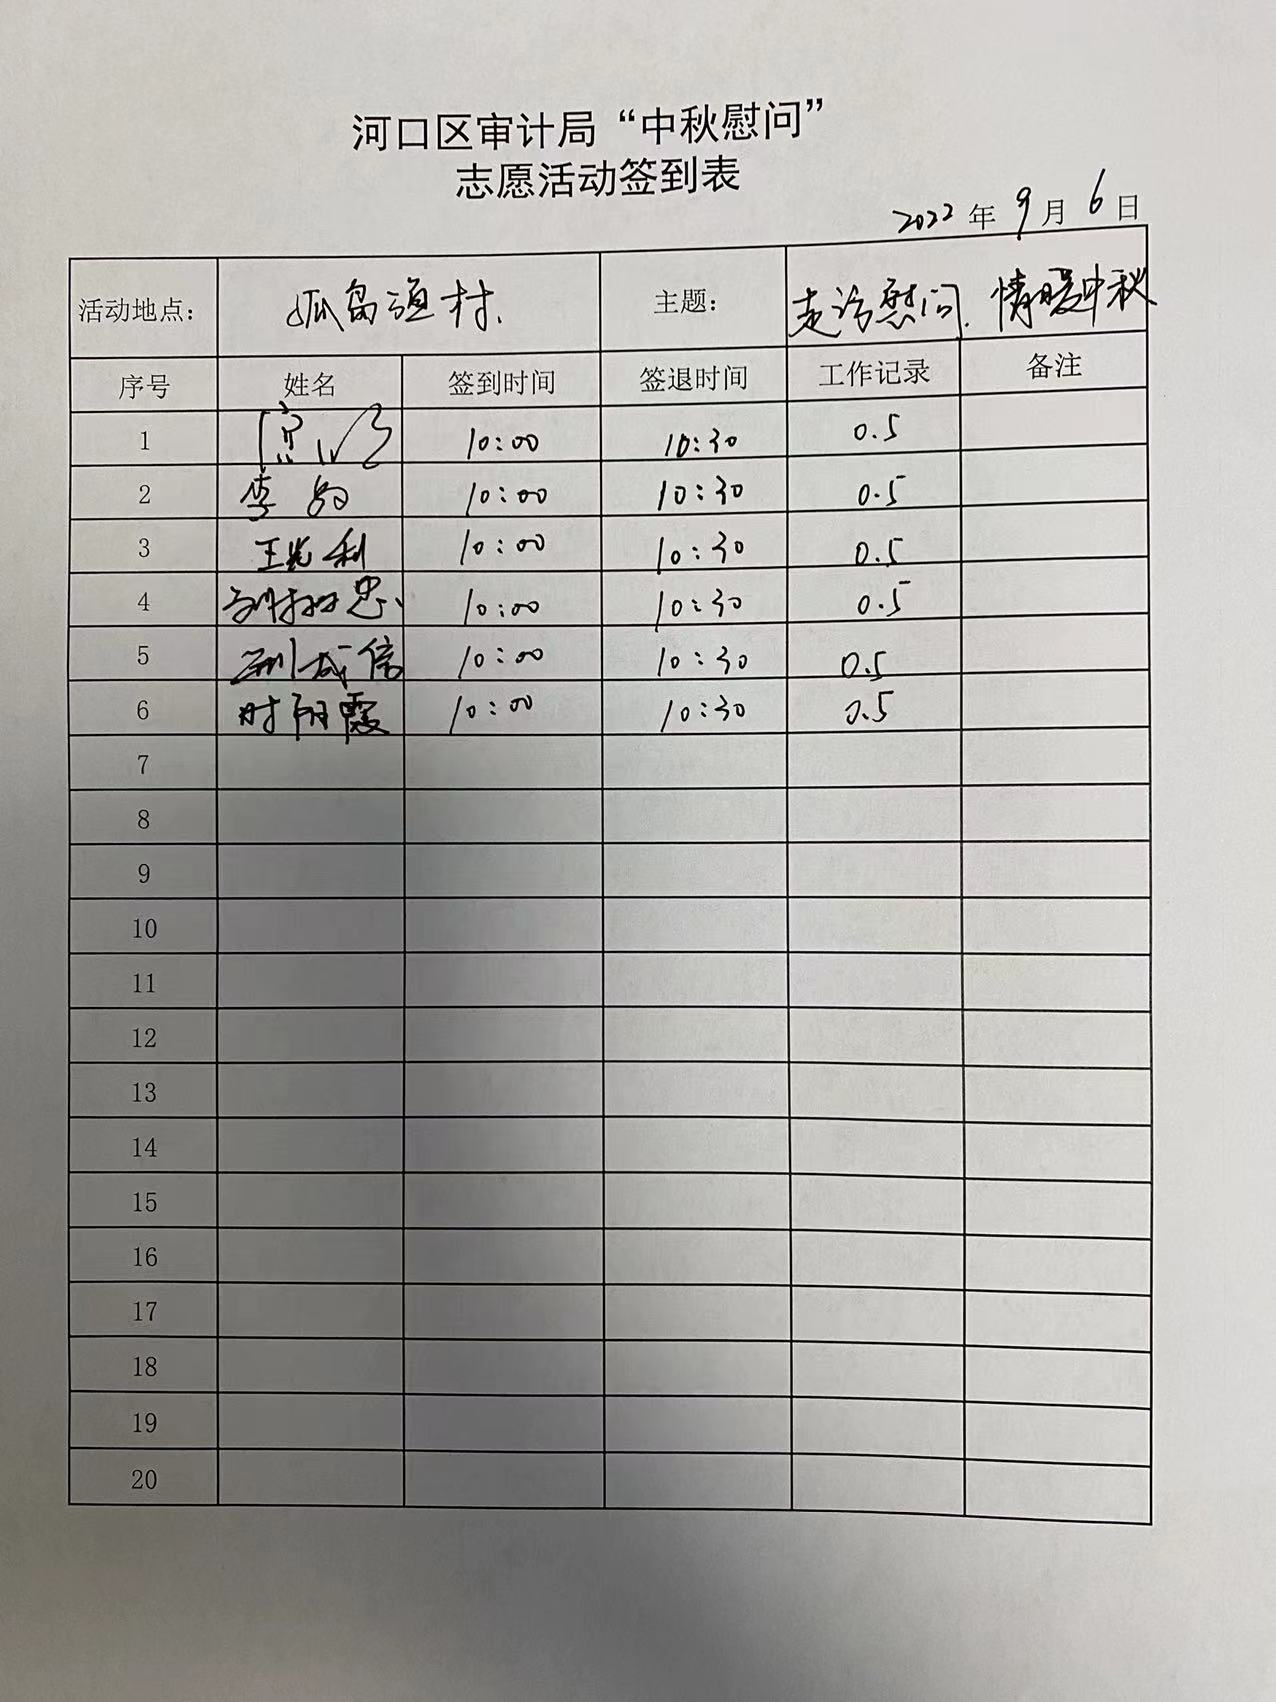 河口区审计局“中秋慰问”
志愿活动签到表
2022年9月6日
活动地点： 孤岛渔村 主题： 走访慰问、情暖中秋
序号 姓名 签到时间 签退时间 工作记录 备注
1 10:00 10:30 0.5
2 李 10:00 10:30 0.5
3 王光利 10:00 10:30 0.5
4 忠 10:00 10:30 0.5
5 信 10:00 10:30 0.5
6 时丽霞 10:00 10:30 0.5
7
8
9
10
11
12
13
14
15
16
17
18
19
20